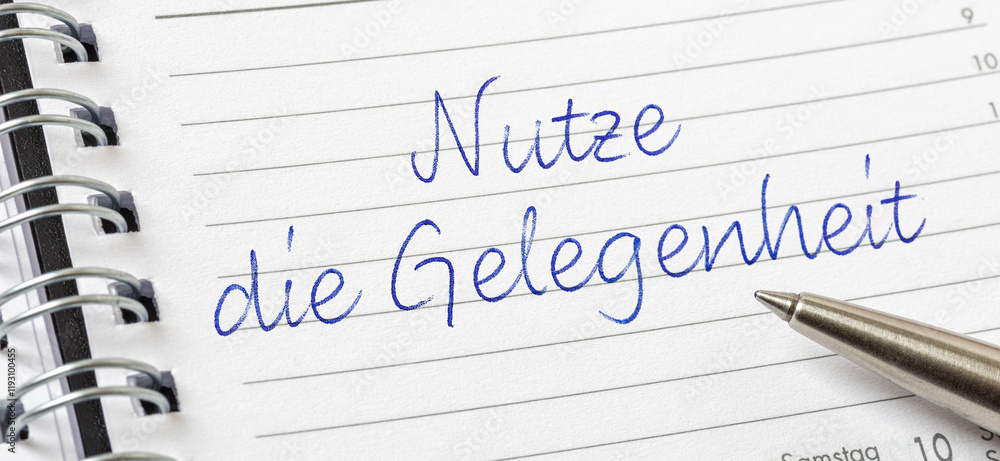 9
10
1
Nutze
die Gelegenheit
Samstag 10
Adobe Stock | #1193100455